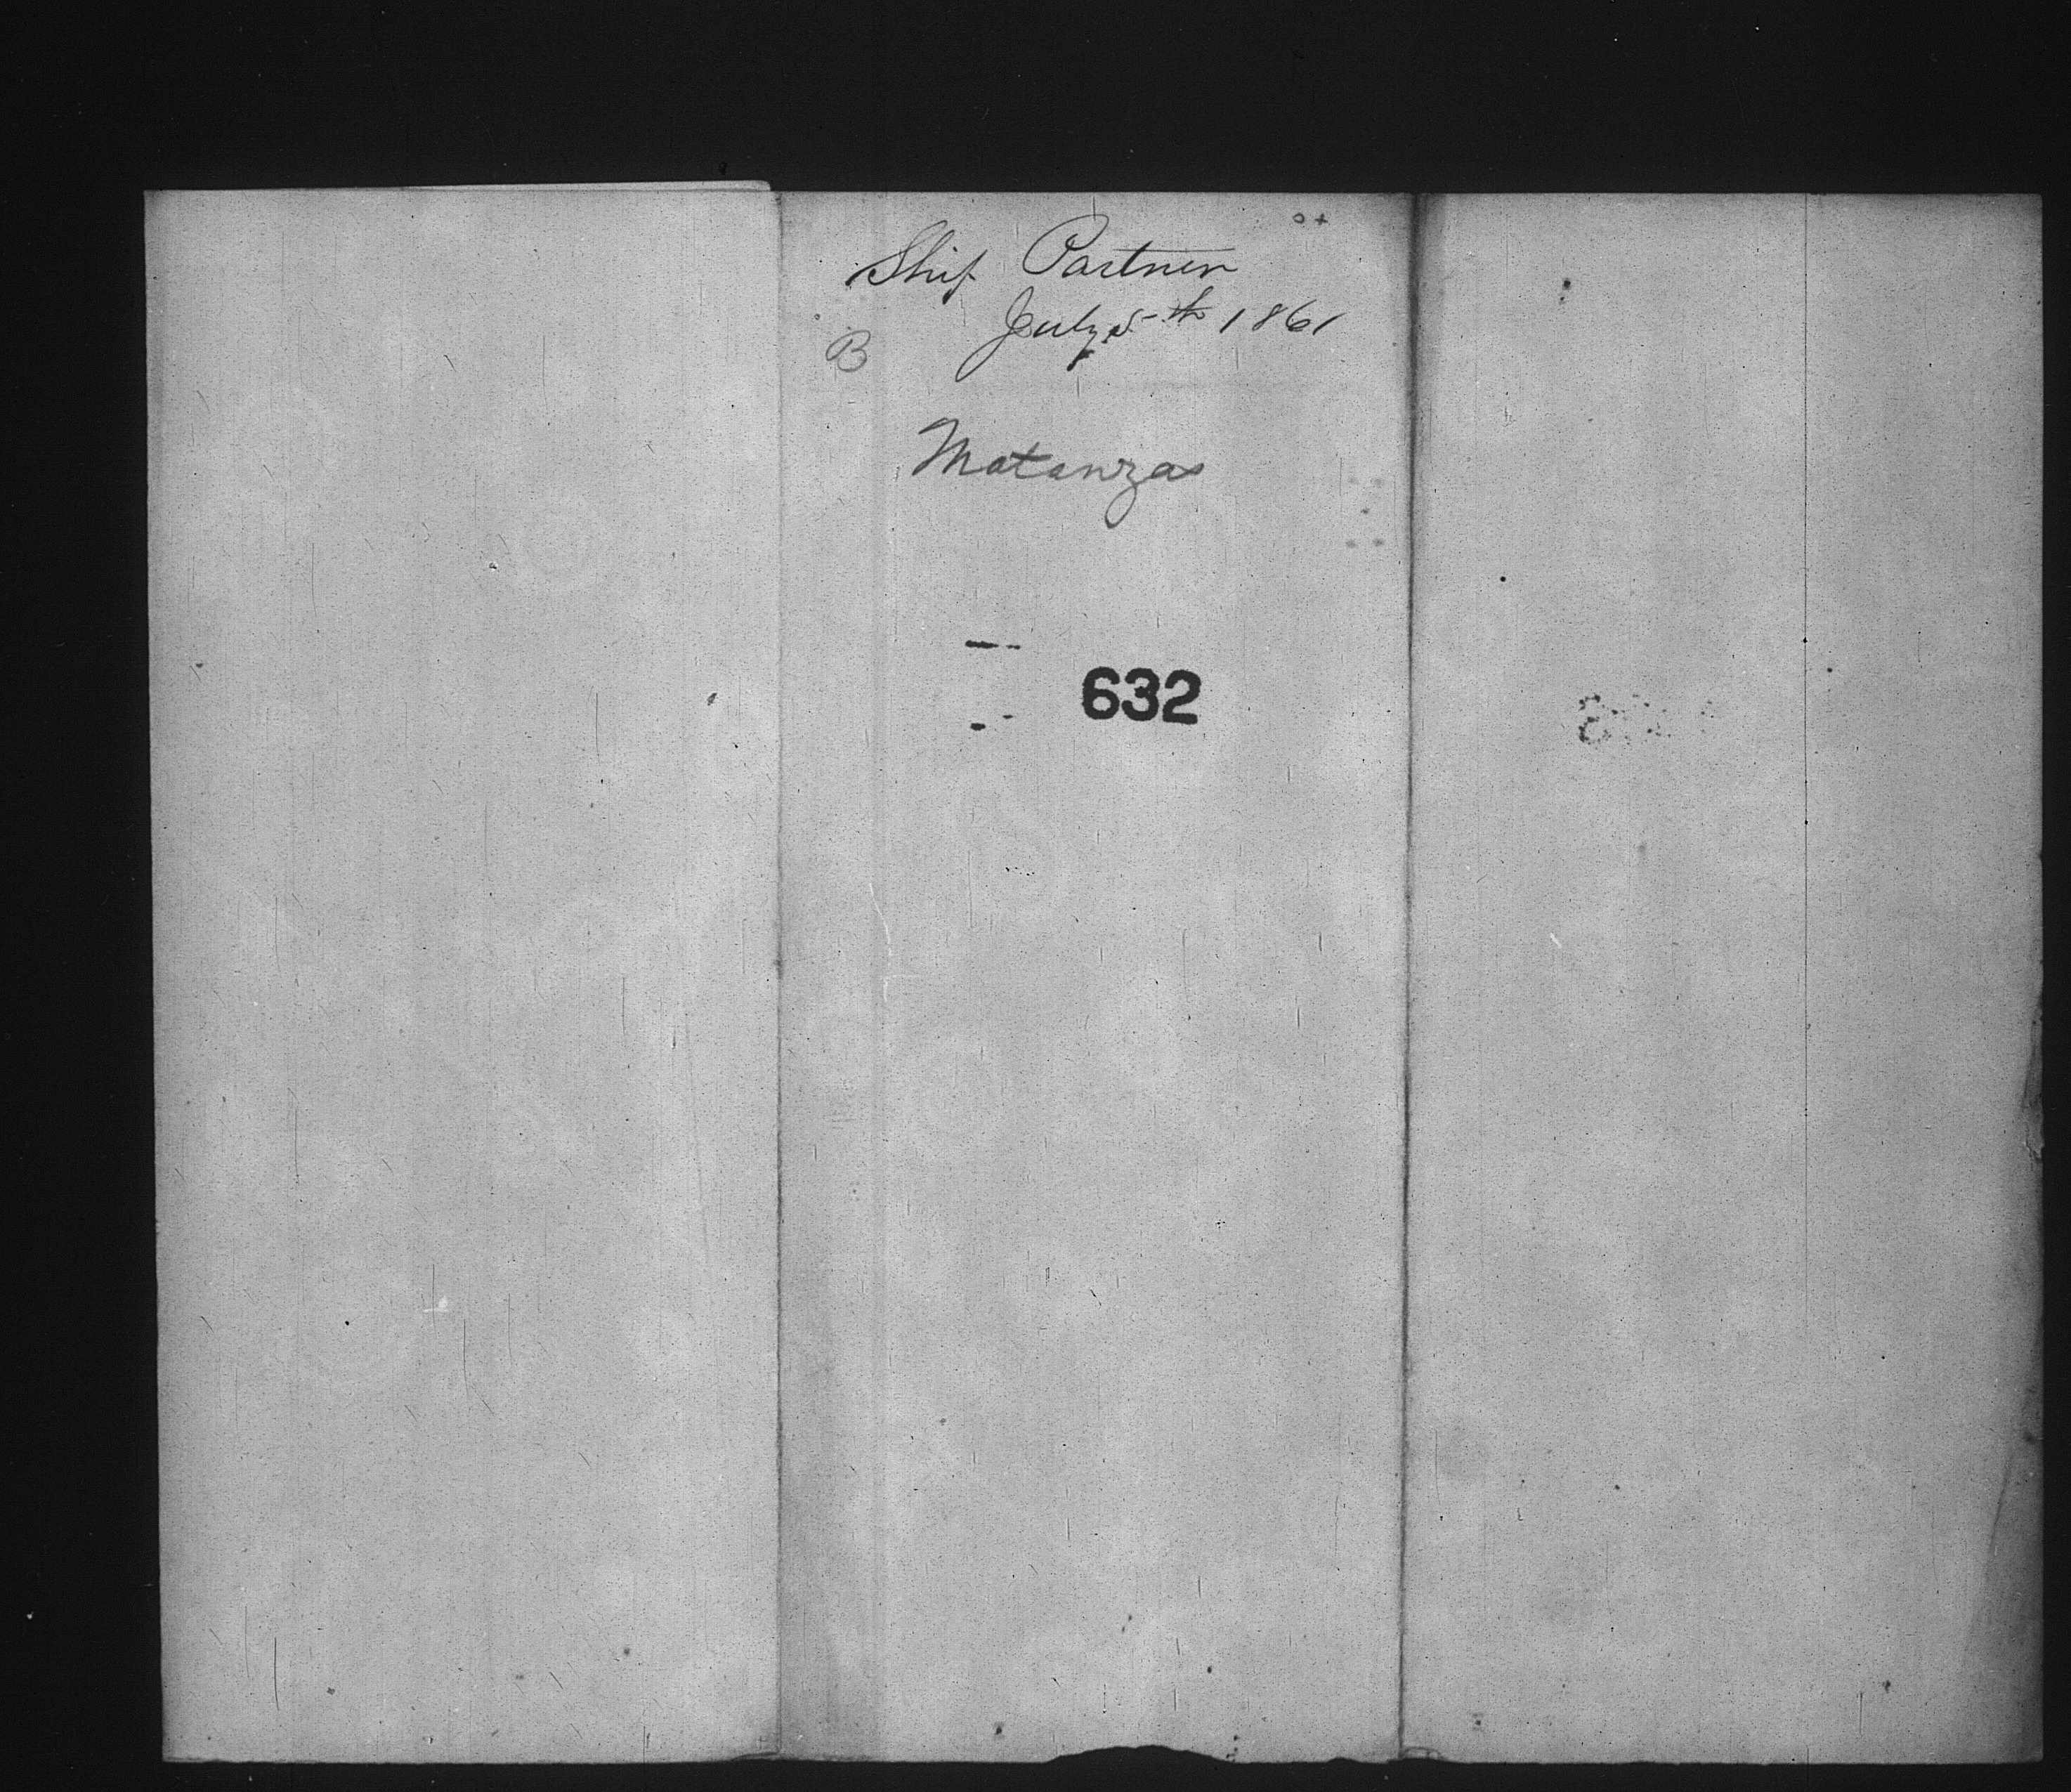 Ship Partner
July 5th 1861
B
Matanzas
632